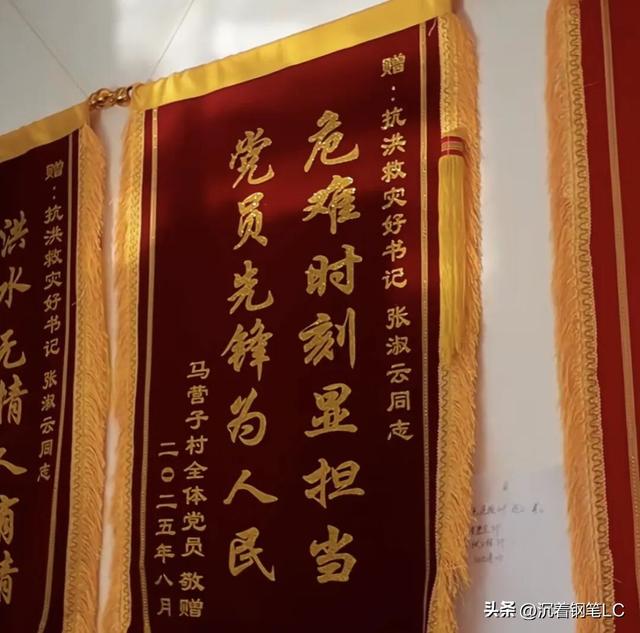 赠：抗洪救灾好书记 张淑云同志
危难时刻显担当
党员先锋为人民
马营子村全体党员 敬赠
二〇二五年八月
赠：抗洪救灾好书记 张淑云同志
洪水无情人有情
头条 @沉着钢笔LC